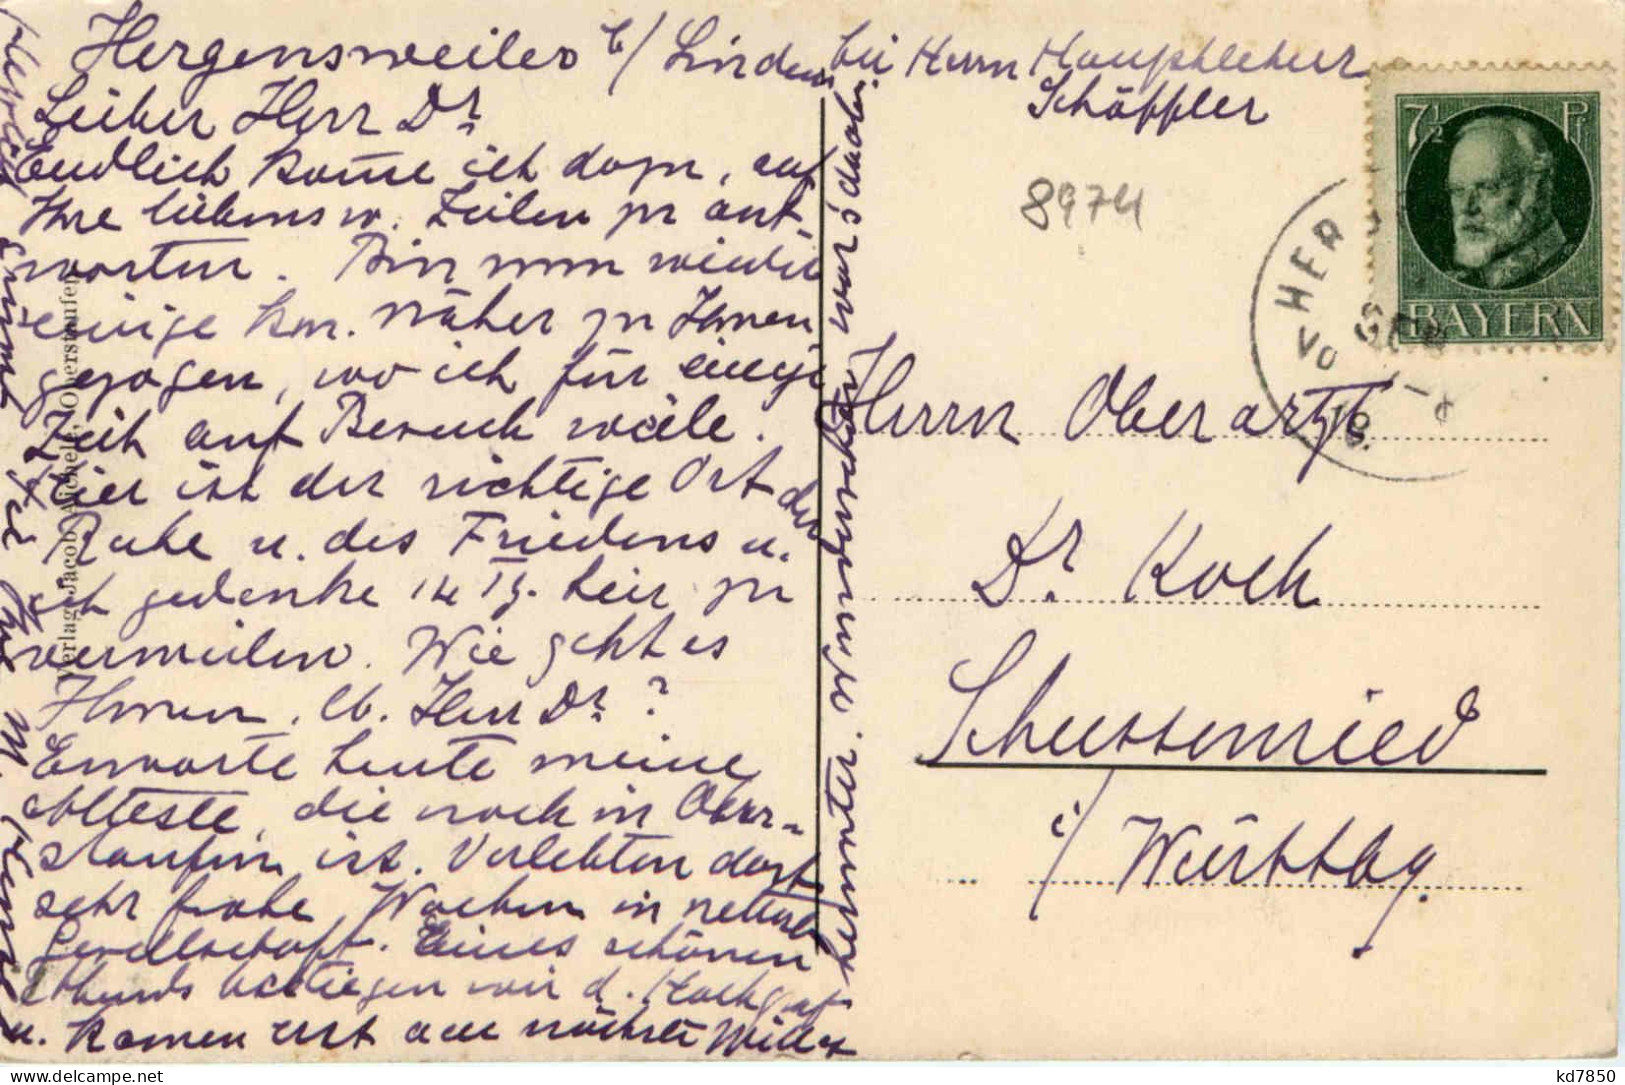 Hergensweiler b/ Lindau bei Herrn Hauptlehrer
Schöffler
Lieber Herr Dr.
Endlich kom̅e ich dazu, auf
Ihre liebensw. Zeilen zu ant-
worten. Bin nun wieder
einige km. näher zu Ihnen
gezogen, wo ich für einige
Zeit auf Besuch weile.
Hier ist der richtige Ort der
Ruhe u. des Friedens u.
ich gedenke 14 Tg. hier zu
verweilen. Wie geht es
Ihnen, lb. Herr Dr.?
Erwarte heute meine
Älteste, die noch in Ober-
staufen ist. Verlebten dort
sehr frohe Wochen in netter
Gesellschaft. Eines schönen
Abends bestiegen wir d. Hochgrat
u. kamen erst am nächsten
herunter. wunderschön war's dabei
Herzlich
grüßt Sie Ihre
Verlag Jacob Aichele, Oberstaufen
8974
7½ Pf
BAYERN
HER
Herrn Oberarzt
Dr. Koch
Schussenried
i/ Württbg.
kd7850